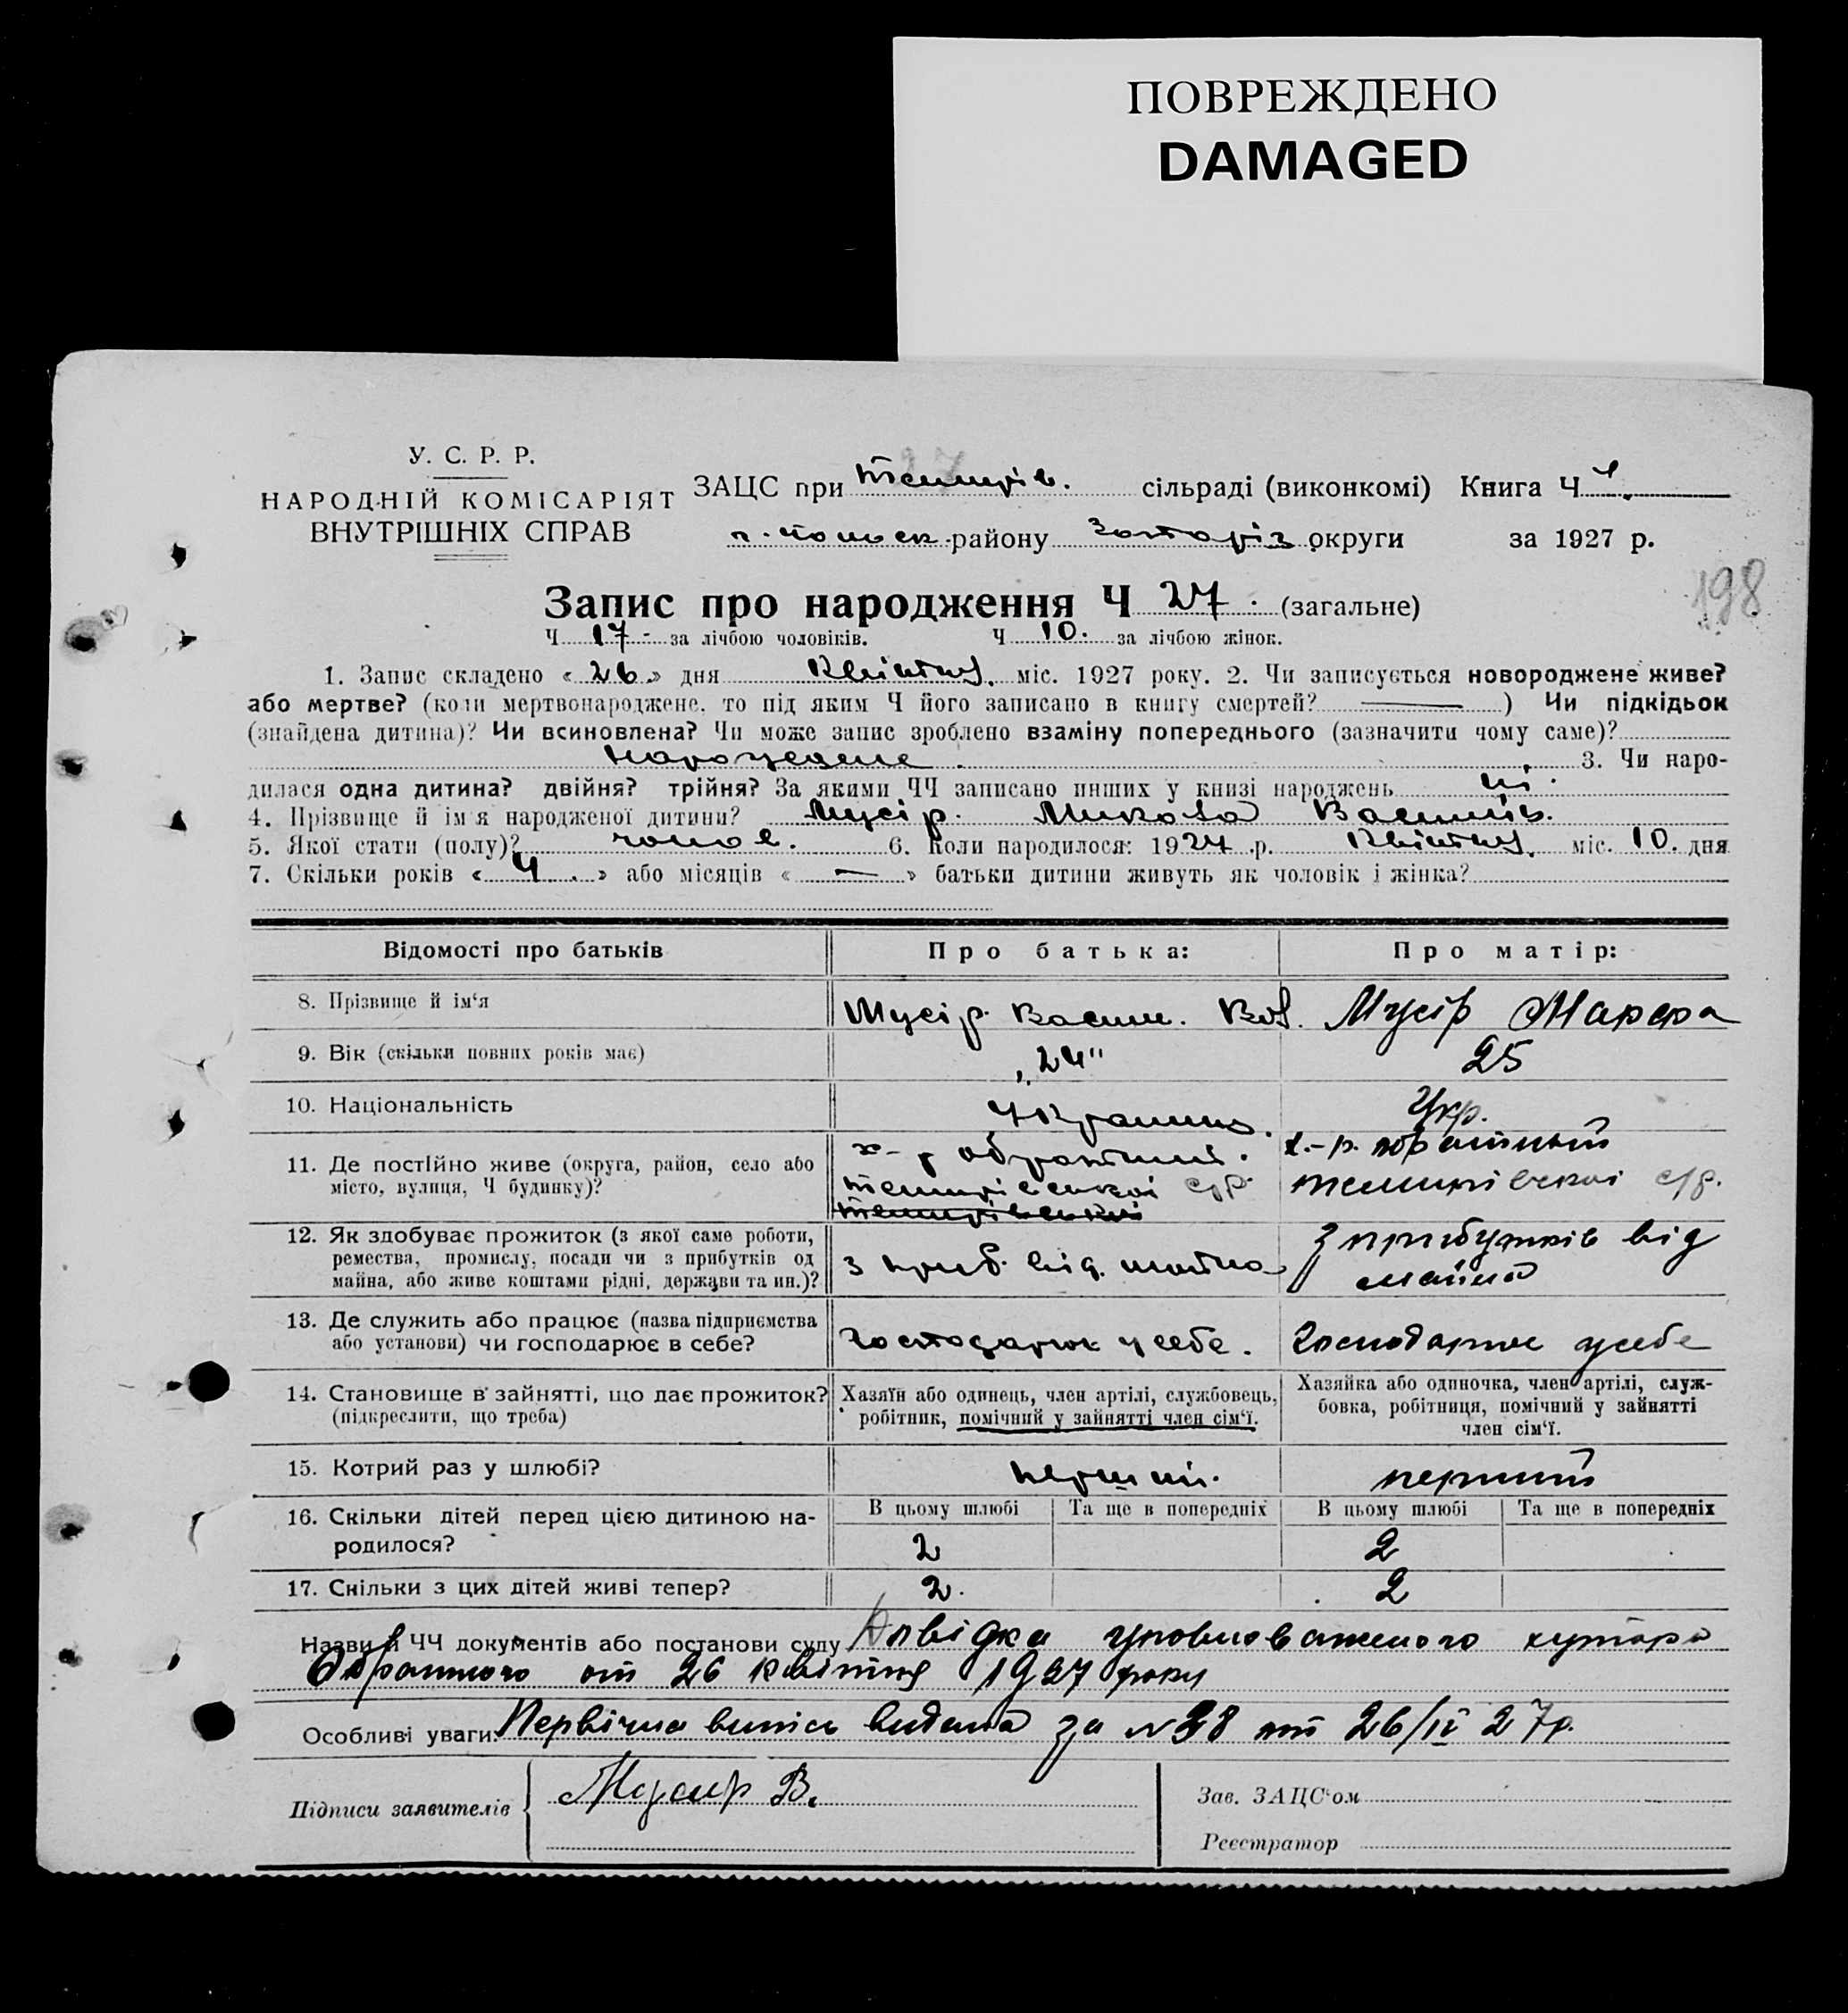 ПОВРЕЖДЕНО
DAMAGED
У. С. Р. Р.
НАРОДНІЙ КОМІСАРІЯТ
ВНУТРІШНІХ СПРАВ
ЗАЦС при Темирів. сільраді (виконкомі) Книга Ч 1.
району Запоріз. округи за 1927 р.
198
Запис про народження Ч 27. (загальне)
Ч 17 за лічбою чоловіків. Ч 10. за лічбою жінок.
1. Запис складено «26» дня Квітня. міс. 1927 року. 2. Чи записується новороджене живе?
або мертве? (коли мертвонароджене, то під яким Ч його записано в книгу смертей? —) Чи підкідьок
(знайдена дитина)? Чи всиновлена? Чи може запис зроблено взаміну попереднього (зазначити чому саме)?
3. Чи наро-
дилася одна дитина? двійня? трійня? За якими ЧЧ записано инших у книзі народжень ні.
4. Прізвище й ім'я народженої дитини? Мусір. Микола Василів.
5. Якої стати (полу)? чолов. 6. Коли народилося: 1927 р. Квітня. міс. 10. дня
7. Скільки років «4.» або місяців «—» батьки дитини живуть як чоловік і жінка?
Відомості про батьків Про батька: Про матір:
8. Прізвище й ім'я Мусір Васил. Мусір Марфа
9. Вік (скільки повних років має) „24" 25
10. Національність Україна. Укр.
11. Де постійно живе (округа, район, село або
місто, вулиця, Ч будинку)?
х-р Обратний. х.-р. Обратный
Темирівської с/р. Темирівскої с/р.
12. Як здобуває прожиток (з якої саме роботи,
ремества, промислу, посади чи з прибутків од
майна, або живе коштами рідні, держави та ин.)?
з приб. від. майна з прибутків від
майна
13. Де служить або працює (назва підприємства
або установи) чи господарює в себе?
Господарює у себе. Господарює у себе
14. Становище в зайнятті, що дає прожиток?
(підкреслити, що треба)
Хазяїн або одинець, член артілі, службовець,
робітник, помічний у зайнятті член сім'ї.
Хазяйка або одиночка, член артілі, служ-
бовка, робітниця, помічний у зайнятті
член сім'ї.
15. Котрий раз у шлюбі? перший. перший
16. Скільки дітей перед цією дитиною на-
родилося?
В цьому шлюбі Та ще в попередніх В цьому шлюбі Та ще в попередніх
2 2
17. Скільки з цих дітей живі тепер? 2. 2
Назви й ЧЧ документів або постанови суду Довідка уповноваженого хутора
Обратного от 26 квітня 1927 року
Особливі уваги: Первічна випісь видана за №38 от 26/IV 27р.
Підписи заявителів Мусир В.
Зав. ЗАЦС'ом
Реєстратор